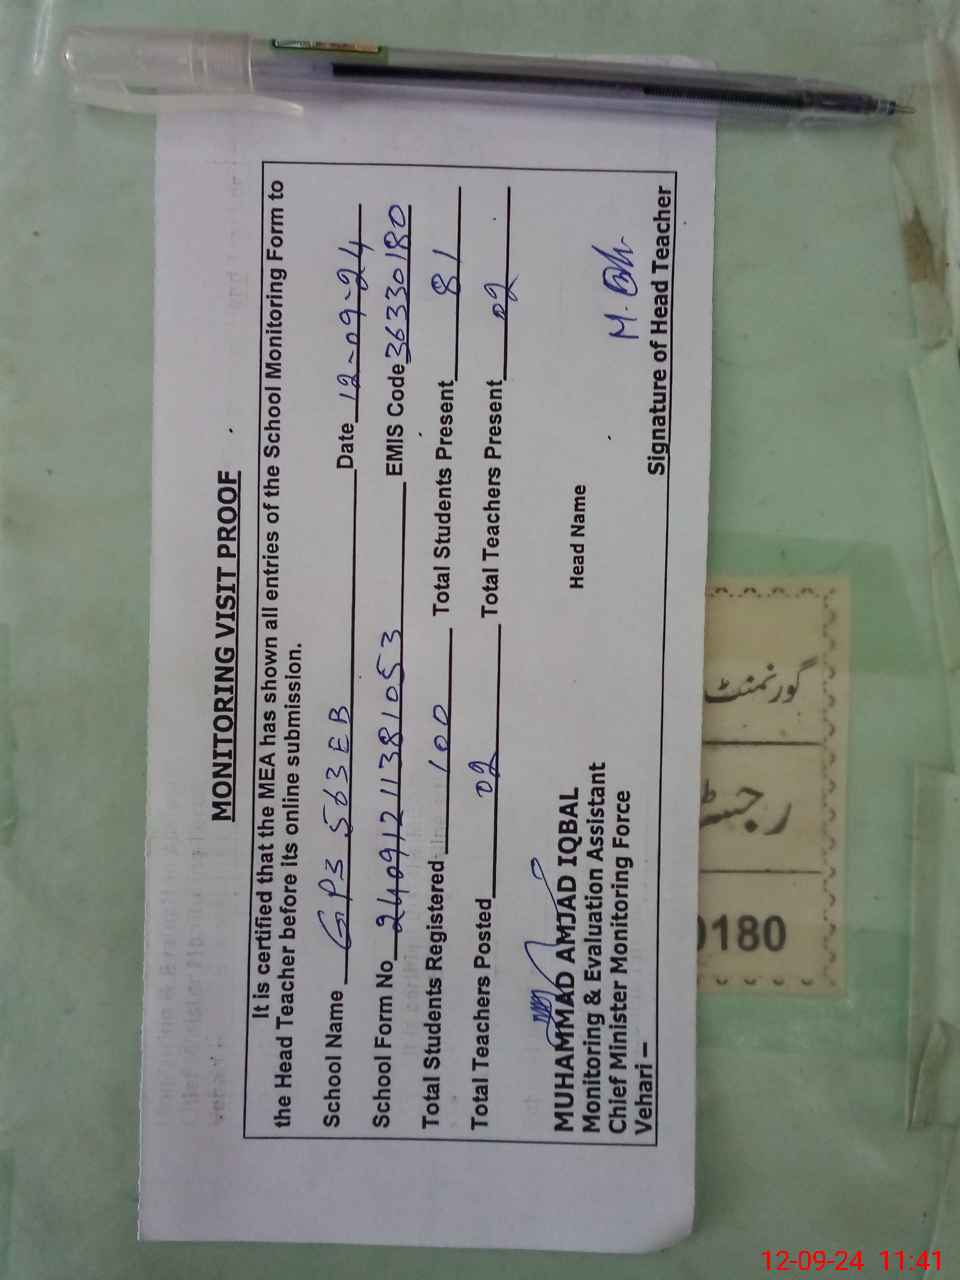 MONITORING VISIT PROOF
It is certified that the MEA has shown all entries of the School Monitoring Form to
the Head Teacher before its online submission.
School Name GPS 563EB Date 12-09-24
School Form No 24091211381053 EMIS Code 36330180
Total Students Registered 100 Total Students Present 81
Total Teachers Posted 02 Total Teachers Present 02
MUHAMMAD AMJAD IQBAL
Monitoring & Evaluation Assistant Head Name
Chief Minister Monitoring Force
Vehari –
Signature of Head Teacher
گورنمنٹ
رجسٹر
0180
12-09-24 11:41